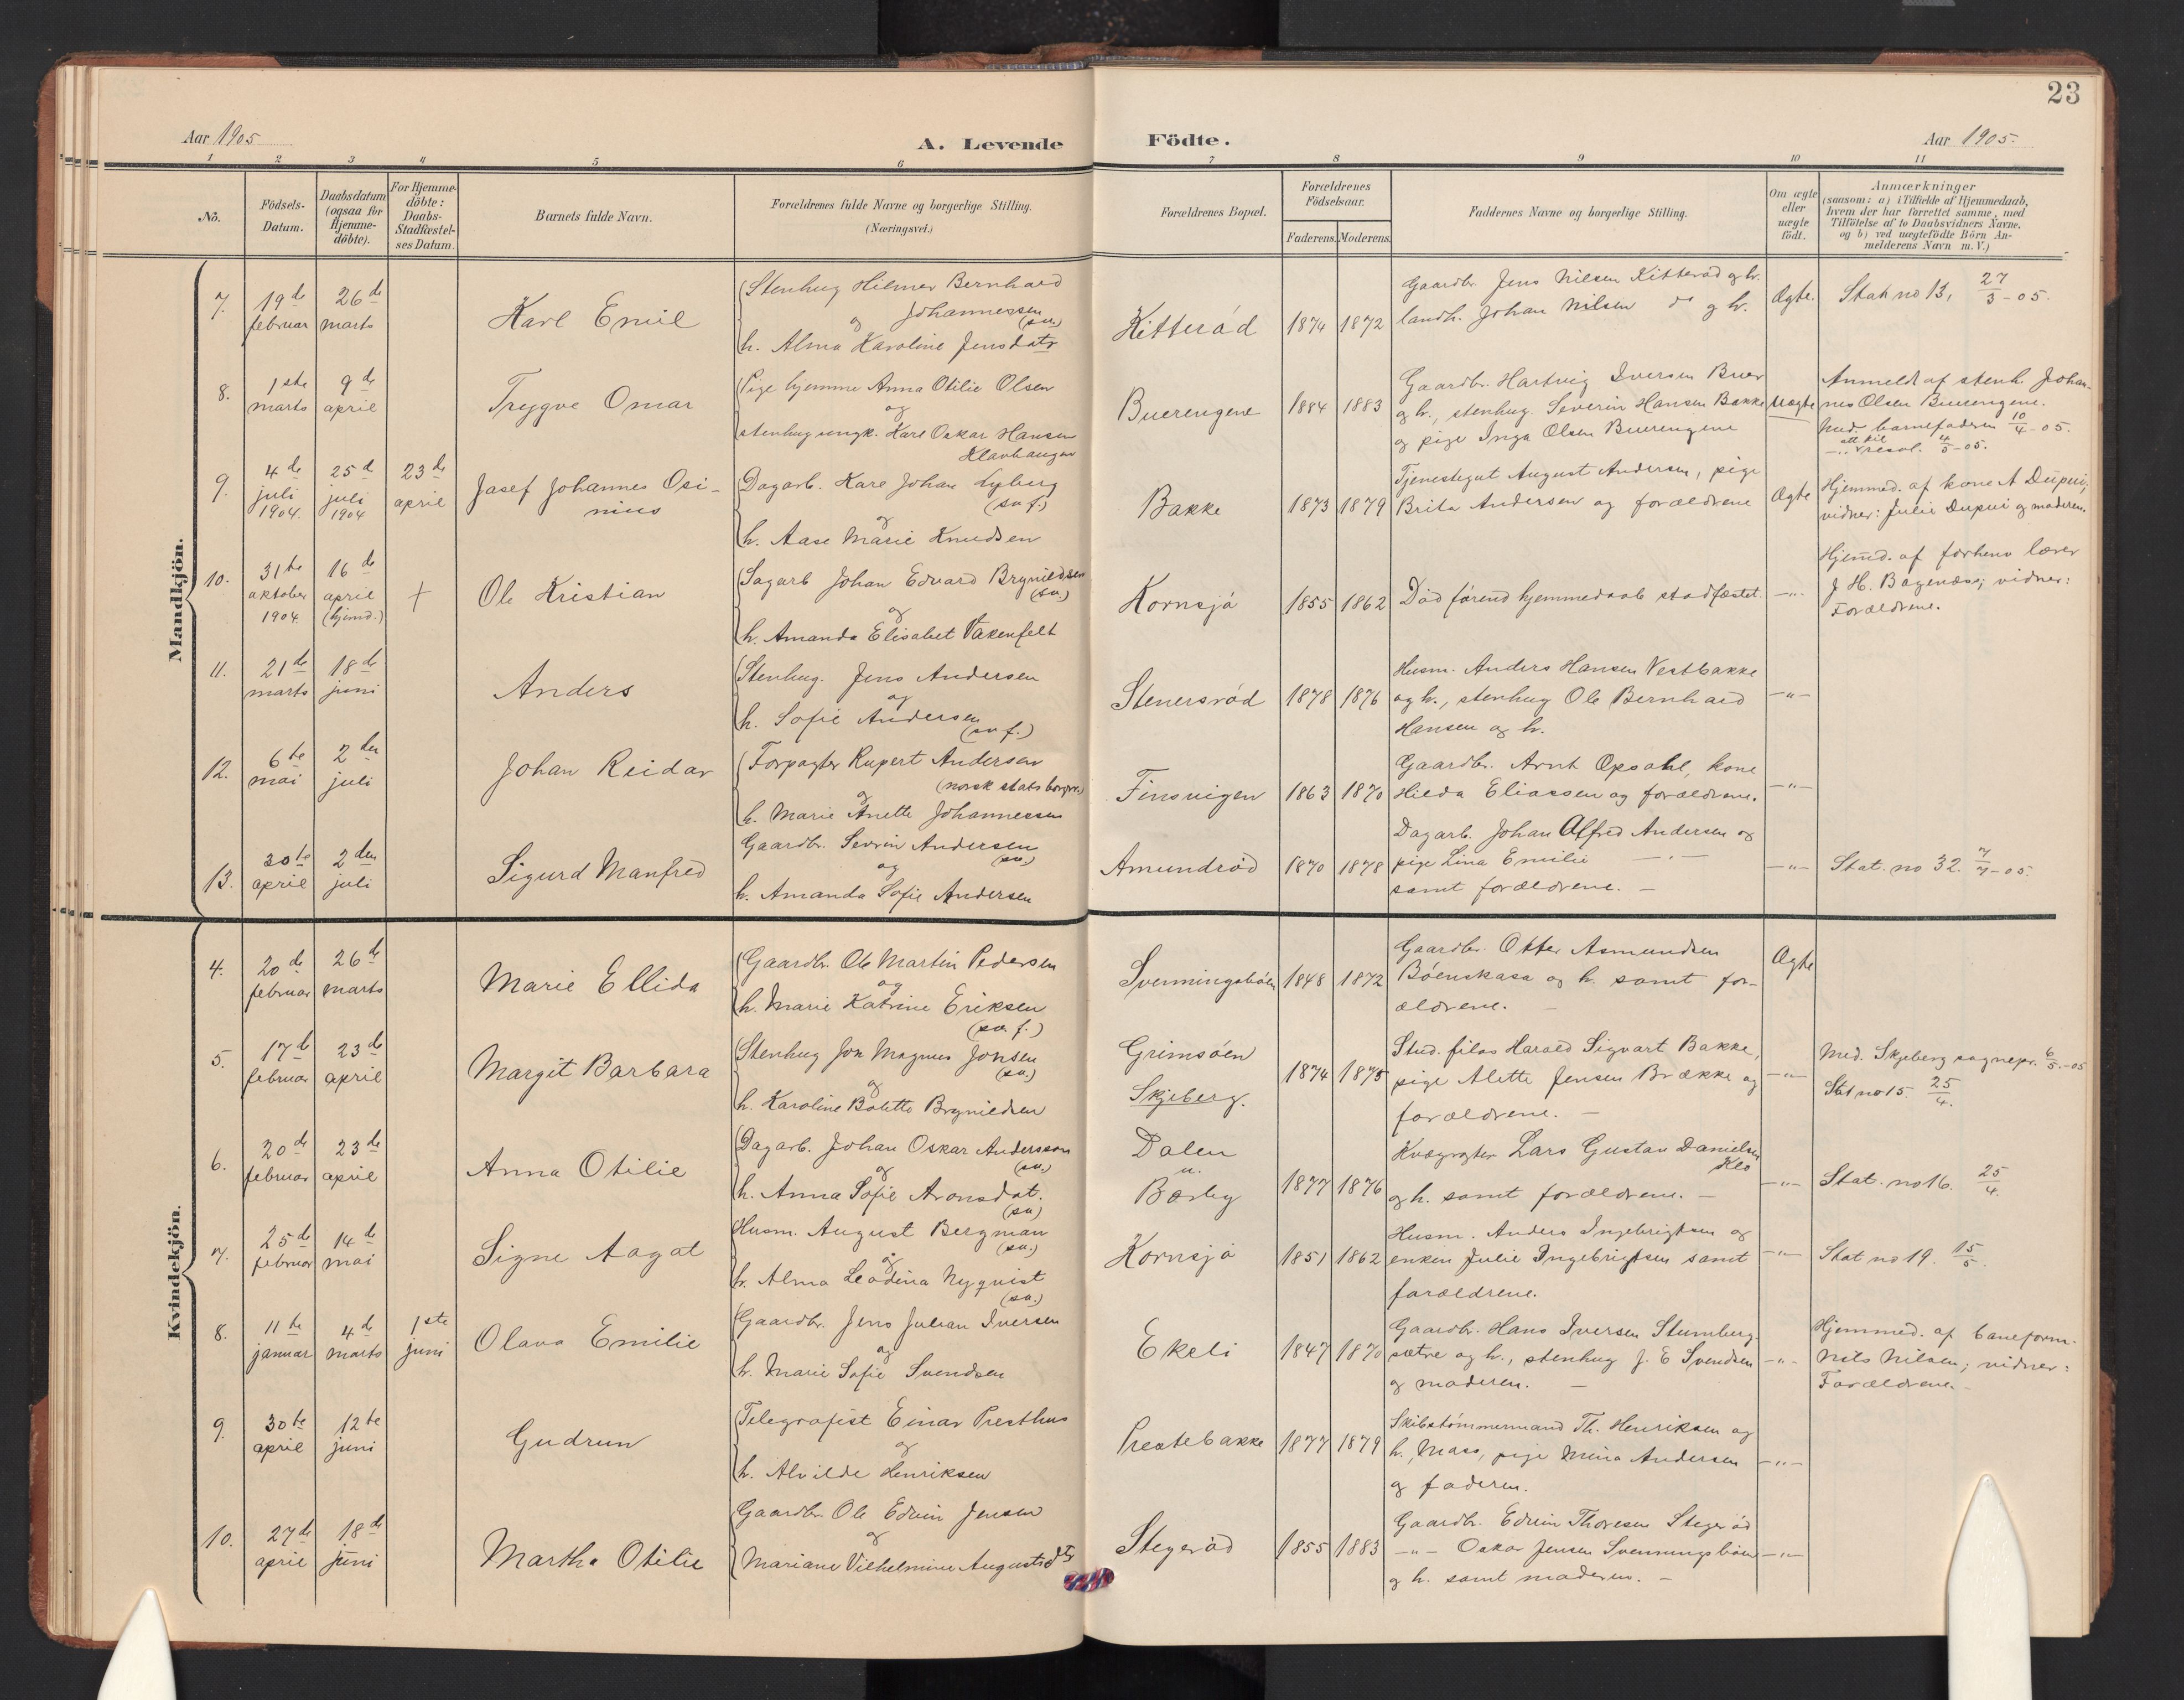 23
Aar 1905
A. Levende
Födte.
Aar 1905.
1 2 3 4 5 6 7 8 9 10 11
Nö.
Födsels-
Datum.
Daabsdatum
(ogsaa for
Hjemme-
döbte).
For Hjemme-
döbte:
Daabs-
Stadfæstel-
ses Datum.
Barnets fulde Navn.
Forældrenes fulde Navne og borgerlige Stilling.
(Næringsvei.)
Forældrenes Bopæl.
Forældrenes
Födselsaar.
Faderens. Moderens.
Faddernes Navne og borgerlige Stilling.
Om ægte
eller
uægte
födt.
Anmærkninger
(saasom: a) i Tilfælde af Hjemmedaab,
hvem der har forrettet samme, med
Tilföielse af to Daabsvidners Navne,
og b) ved uægtefödte Börn An-
melderens Navn m.V.)
Mandkjön.
7.
19de
februar
26de
marts
Karl Emil
Stenhug Hilmer Bernhard
Johannessen
og (sv.)
h. Alma Karoline Jensdatr
Kitteröd
1874 1872
Gaardbr. Jens Nilsen Kitteröd og h.
landh. Johan Nilsen do og h.
Ægte.
Stat. no 13, 27/3-05.
8.
1ste
marts
9de
april
Trygve Omar
Pige hjemme Anna Otilie Olsen
og
stenhug ungk. Karl Oskar Hansen
Klavhaugen
Buerengene
1884 1883
Gaardbr. Hartvig Iversen Buer
og h., stenhug. Severin Hansen Bakke
og pige Inga Olsen Buerengene
Uægte
Anmeldt af stenh. Johan-
nes Olsen Buerengene.
Und. barnefaderen 10/4-05.
resol. 4/5-05.
9.
4de
juli
1904.
25d
juli
1904
23de
april
Josef Johannes Osi-
nius
Dagarb. Karl Johan Nyberg
(sv f.)
og
h. Aase Marie Knudsen
Bakke
1873 1879
Tjenestegut August Andersen, pige
Brita Andersen og forældrene
Ægte
Hjemmed. af kone A Dupui;
vidner: Julie Dupui og moderen.
10.
31te
oktober
1904.
16de
april
(hjemd.)
+
Ole Kristian
Sagarb Johan Edvard Brynildsen
(sv.)
og
h. Amanda Elisabet Vakenfelt
Kornsjö
1855 1862
Död förend hjemmedaab stadfæstet.
-"-
Hjemd. af forhenv lærer
J. H. Bogenæs; vidner:
Forældrene.
11.
21de
marts
18de
juni
Anders
Stenhug. Jens Andersen
og
h. Sofie Andersen
(sv f.)
Stenersröd
1878 1876
Husm. Anders Hansen Vestbakke
og h., stenhug Ole Bernhard
Hansen og h.
-"-
12.
6te
mai
2den
juli
Johan Reidar
Forpagter Rupert Andersen
(norsk statsborger.)
og
h. Marie Anette Johannessen
Finsvigen
1863 1870
Gaardbr. Arnt Opsahl, kone
Hilda Eliassen og forældrene.
-"-
13.
30te
april
2den
juli
Sigurd Manfred
Gaardbr. Sevrin Andersen
og (sv.)
h. Amanda Sofie Andersen
Amundröd
1870 1878
Dagarb. Johan Alfred Andersen og
pige Lina Emilie -"-
samt forældrene. -
-"-
Stat. no 32. 7/7-05.
Kvindekjön.
4.
20de
februar
26de
marts
Marie Ellida
Gaardbr. Ole Martin Pedersen
og
h. Marie Katrine Eriksen
(sv. f.)
Svenningsböen
1848 1872
Gaardbr. Otter Asmundsen
Böenskasa og h. samt for-
ældrene. -
Ægte
5.
17de
februar
23de
april
Margit Barbara
Stenhug Jon Magnus Jonsen
(sv.)
og
h. Karoline Bolette Brynildsen
Grimsöen
Skjeberg.
1874 1875
Stud. filos Harald Sigvart Bakke,
pige Alette Jensen Brække og
forældrene. -
-"-
Med. Skjeberg sognepr. 6/5-05
Stat no 15. 25/4.
6.
20de
februar
23de
april
Anna Otilie
Dagarb. Johan Oskar Andersson
(sv.)
og
h. Anna Sofie Aronsdat.
(sv)
Dalen
u.
Börby
1877 1876
Kvægrøgter Lars Gustav Danielsen
Klo
og h. samt forældrene. -
-"-
Stat. no 16. 25/4.
7.
25de
februar
14de
mai
Signe Aagot
Husm. August Bergman
(sv.)
og
h. Alma Leodina Nyqvist
(sv.)
Kornsjö
1851 1862
Husm. Anders Ingebrigtsen og
enken Julie Ingebrigtsen samt
forældrene.
-"-
Stat no 19. 15/5.
8.
11te
januar
4de
marts
1ste
juni
Olava Emilie
Gaardbr. Jens Julian Iversen
og
h. Marie Sofie Svendsen
Ekeli
1847 1870
Gaardbr. Hans Iversen Stumberg-
sætre og h., stenhug J. E Svendsen
og moderen. -
-"-
Hjemmed. af baneform.
Nils Nilsen; vidner:
Forældrene.
9.
30te
april
12te
juni
Gudrun
Telegrafist Einar Presthus
og
h. Alvilde Henriksen
Prestebakke
1877 1879
Skibstömmermand Th. Henriksen og
h., Moss, pige Mina Andersen
og faderen.
-"-
10.
27de
april
18de
juni
Martha Otilie
Gaardbr Ole Edvin Jensen
og
Mariane Vilhelmine Augustsdtr
Stegeröd
1855 1883
Gaardbr. Edvin Thoresen Stegeröd
-"- Oskar Jensen Svenningsböen
og h. samt moderen. -
-"-